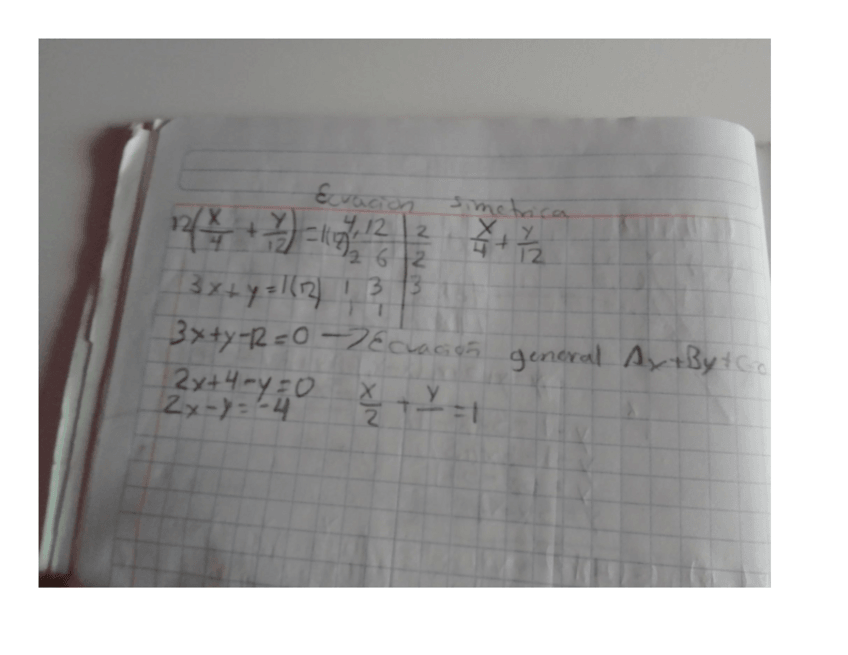 Ecuación simetrica
12(x/4 + y/12) = 1(12) 4,12 | 2 x/4 + y/12
2 6 | 2
3x+y=1(12) 1 3 | 3
1 1
3x+y-12=0 → Ecuación general Ax+By+C=0
2x+4-y=0
2x-y=-4 x/2 + y/ =1